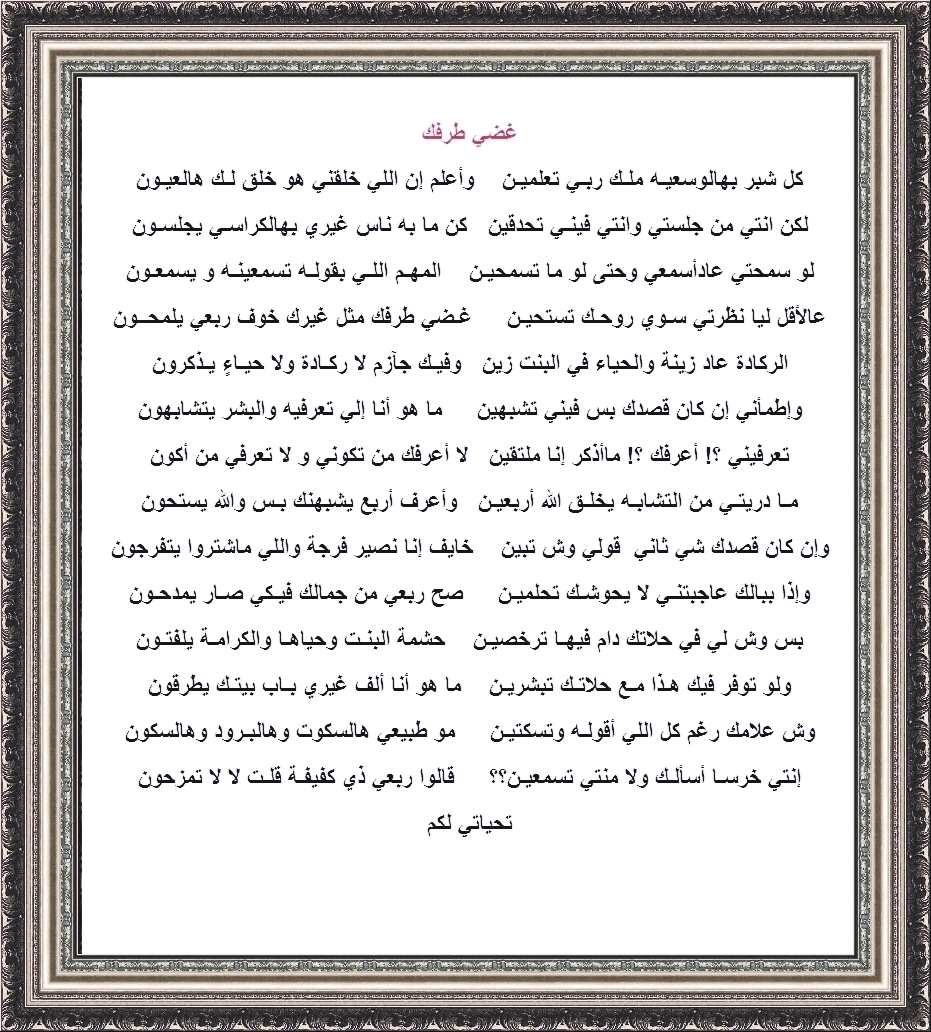 غضي طرفك
كل شبر بهالوسعيـه ملـك ربـي تعلميـن وأعلم إن اللي خلقني هو خلق لـك هالعيـون
لكن انتي من جلستي وانتي فينـي تحدقين كن ما به ناس غيري بهالكراسـي يجلسـون
لو سمحتي عادأسمعي وحتى لو ما تسمحيـن المهـم اللـي بقولـه تسمعينـه و يسمعـون
عالأقل ليا نظرتي سـوي روحـك تستحيـن غـضي طرفك مثل غيرك خوف ربعي يلمحــون
الركادة عاد زينة والحياء في البنت زين وفيـك جآزم لا ركـادة ولا حيـاءٍ يـذكرون
وإطمأني إن كان قصدك بس فيني تشبهين ما هو أنا إلي تعرفيه والبشر يتشابهون
تعرفيني ؟! أعرفك ؟! ماأذكر إنا ملتقين لا أعرفك من تكوني و لا تعرفي من أكون
مـا دريتـي من التشابـه يخلـق الله أربعيـن وأعرف أربع يشبهنك بـس والله يستحون
وإن كان قصدك شي ثاني قولي وش تبين خايف إنا نصير فرجة واللي ماشتروا يتفرجون
وإذا ببالك عاجبتنـي لا يحوشـك تحلميـن صح ربعي من جمالك فيـكي صـار يمدحـون
بس وش لي في حلاتك دام فيهـا ترخصيـن حشمة البنـت وحياهـا والكرامـة يلفتـون
ولو توفر فيك هـذا مـع حلاتـك تبشريـن ما هو أنا ألف غيري بـاب بيتـك يطرقون
وش علامك رغم كل اللي أقولـه وتسكتيـن مو طبيعي هالسكوت وهالبـرود وهالسكون
إنتي خرسـا أسألـك ولا منتي تسمعيـن؟؟ قالوا ربعي ذي كفيفـة قلـت لا لا تمزحون
تحياتي لكم